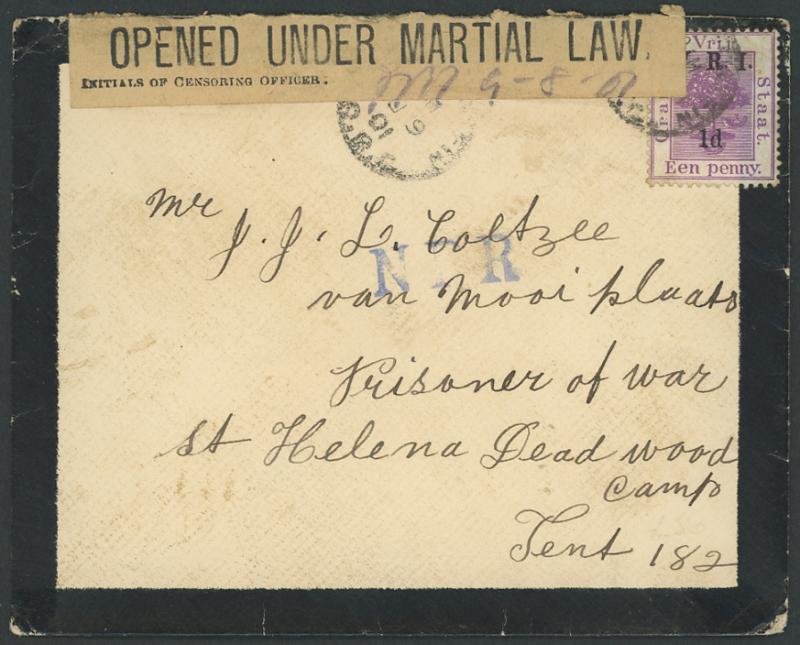 OPENED UNDER MARTIAL LAW.
INITIALS OF CENSORING OFFICER.
9-8-01
Vrij
R. I.
Staat.
1d
Een penny.
Mr
J. J. L. Coetzee
van Mooi plaats
Prisoner of war
St Helena Dead wood
Camp
Tent 182